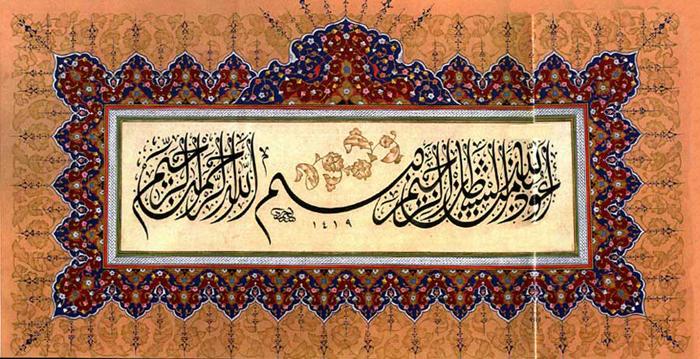 أعوذ بالله من الشيطان الرجيم بسم الله الرحمن الرحيم
١٤١٩